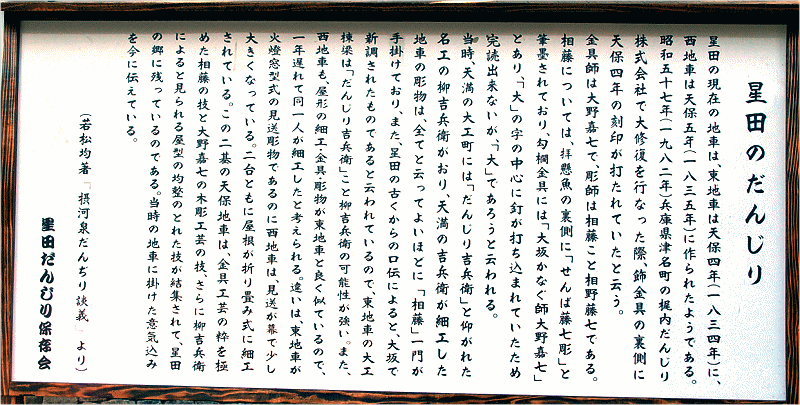 星田のだんじり
星田の現在の地車は、東地車は天保四年(一八三四年)に、
西地車は天保五年(一八三五年)に作られたようである。
昭和五十七年(一九八二年)兵庫県津名町の梶内だんじり
株式会社で大修復を行なった際、飾金具の裏側に
天保四年の刻印が打たれていたと云う。
金具師は大野嘉七で、彫師は相藤こと相野藤七である。
相藤については、拝懸魚の裏側に「せんば藤七彫」と
筆墨されており、勾欄金具には「大坂かなぐ師大野嘉七」
とあり、「大」の字の中心に釘が打ち込まれていたため
完読出来ないが、「大」であろうと云われる。
当時、天満の大工町には「だんじり吉兵衛」と仰がれた
名工の柳吉兵衛がおり、天満の吉兵衛が細工した
地車の彫物は、全てと云ってよいほどに「相藤」一門が
手掛けており、また、星田の古くからの口伝によると、大坂で
新調されたものであると云われているので、東地車の大工
棟梁は「だんじり吉兵衛」こと柳吉兵衛の可能性が強い。また、
西地車も、屋形の細工・金具・彫物が東地車と良く似ているので、
一年遅れて同一人が細工したと考えられる。違いは、東地車が
火燈窓型式の見送彫物であるのに西地車は、見送が幕で少し
大きくなっている。二台ともに屋根が折り畳み式に細工
されている。この二基の天保地車は、金具工芸の粋を極
めた相藤の技と大野嘉七の木彫工芸の技、さらに柳吉兵衛
によると見られる屋型の均整のとれた技が結集されて、星田
の郷に残っているのである。当時の地車に掛けた意気込み
を今に伝えている。
(若松均著「摂河泉だんぢり談義」より)
星田だんじり保存会